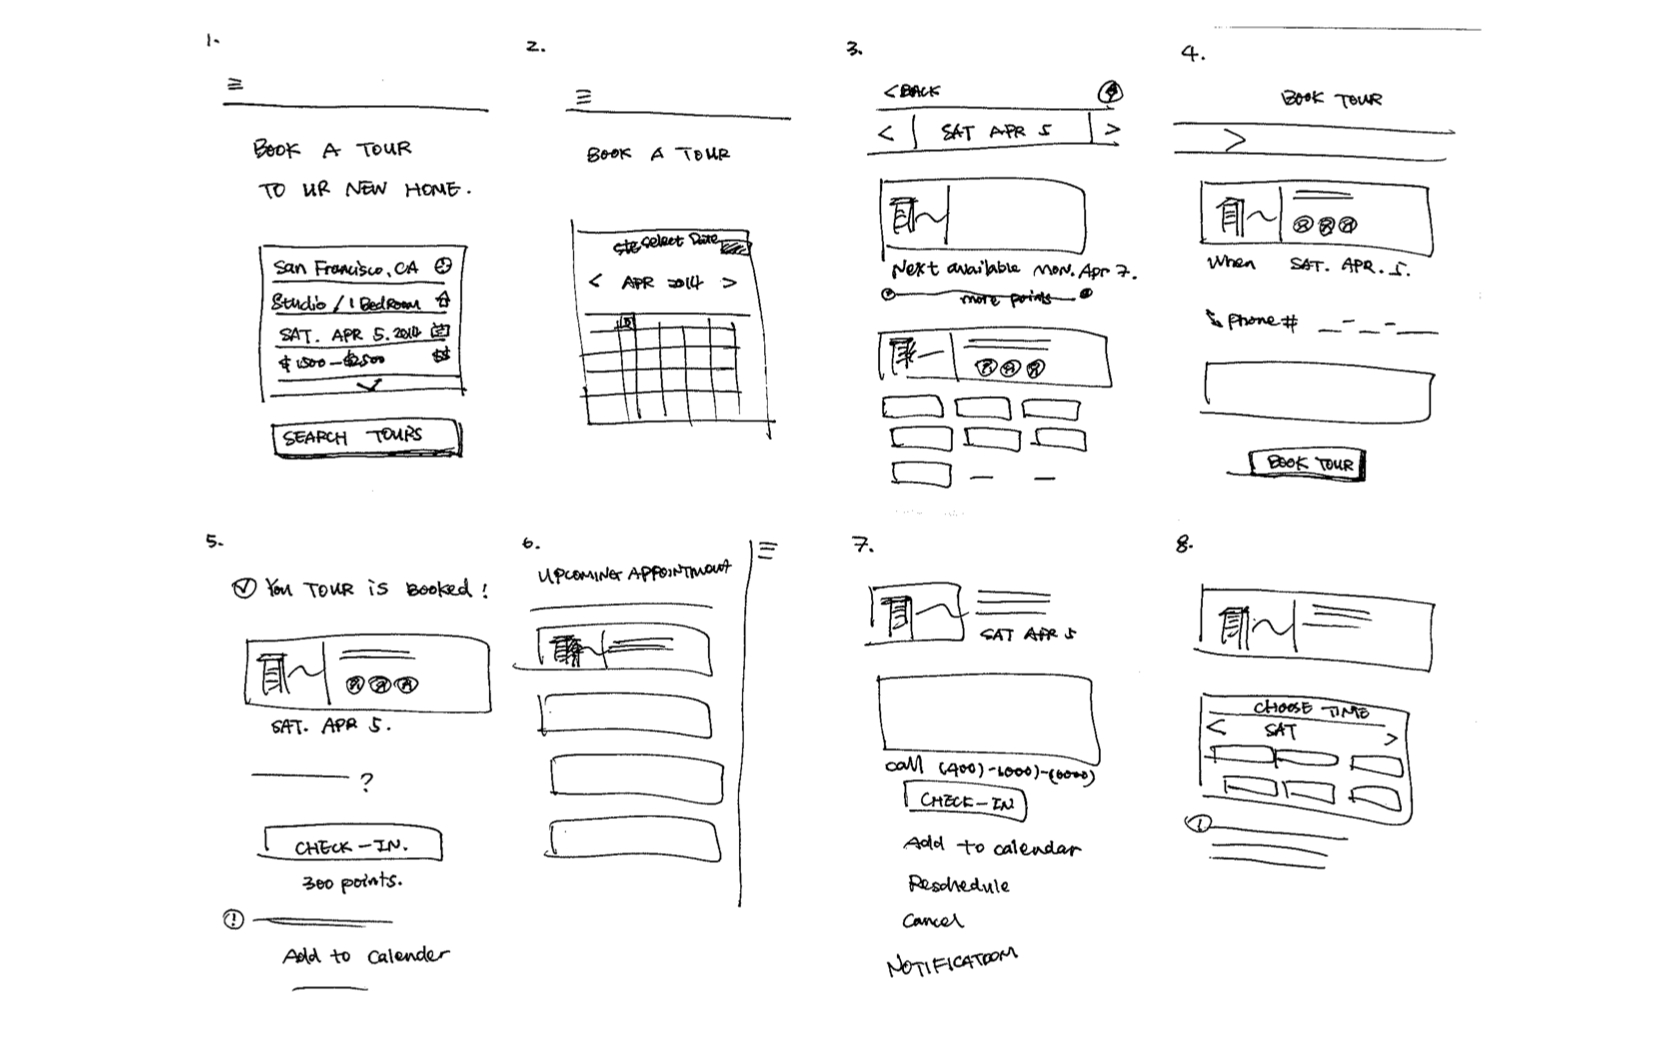 1.
BOOK A TOUR
TO UR NEW HOME.
San Francisco, CA
Studio / 1 Bedroom
SAT. APR 5. 2014
$1500 - $2500
SEARCH TOURS
2.
BOOK A TOUR
Select Date
< APR 2014 >
3.
< BACK
< SAT APR 5 >
Next available Mon. Apr 7.
more points
4.
BOOK TOUR
>
When SAT. APR. 5.
Phone # _-_-_
BOOK TOUR
5.
You TOUR is BOOKed!
SAT. APR 5.
?
CHECK-IN.
300 points.
!
Add to Calender
6.
UPCOMING APPOINTMENT
7.
SAT APR 5
call (400)-(000)-(0000)
CHECK-IN
Add to calendar
Reschedule
Cancel
8.
CHOOSE TIME
< SAT >
!